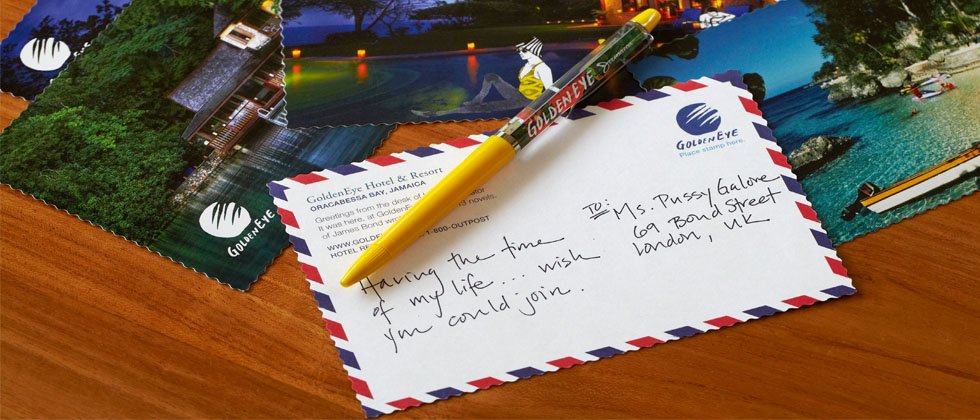 GOLDENEYE
GOLDENEYE
GOLDENEYE
Place stamp here.
GoldenEye Hotel & Resort
ORACABESSA BAY, JAMAICA
Greetings from the desk of
It was here, at GoldenEye
of James Bond novels.
WWW.GOLDEN 1-800-OUTPOST
HOTEL
TO: Ms. Pussy Galore
69 Bond Street
London, UK
Having the time
of my life... wish
you could join.